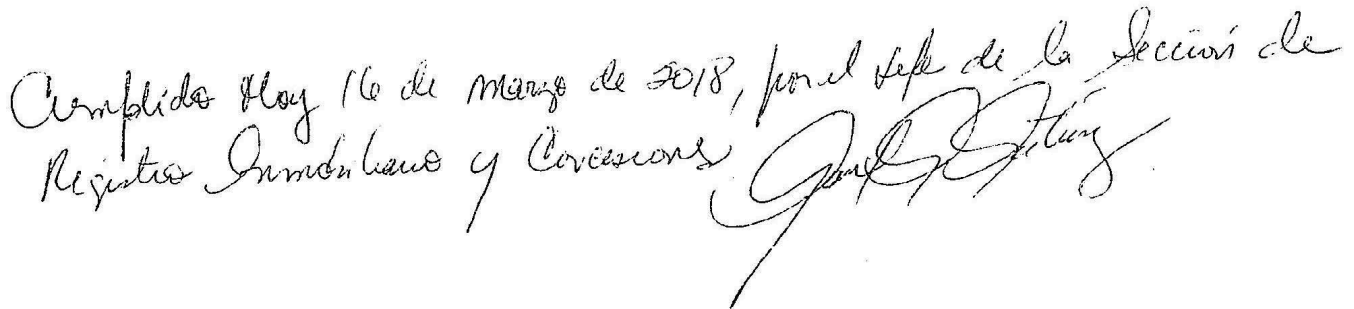 Cumplido Hoy 16 de marzo de 2018, por el Jefe de la Sección de
Registro Inmobiliario y Concesiones